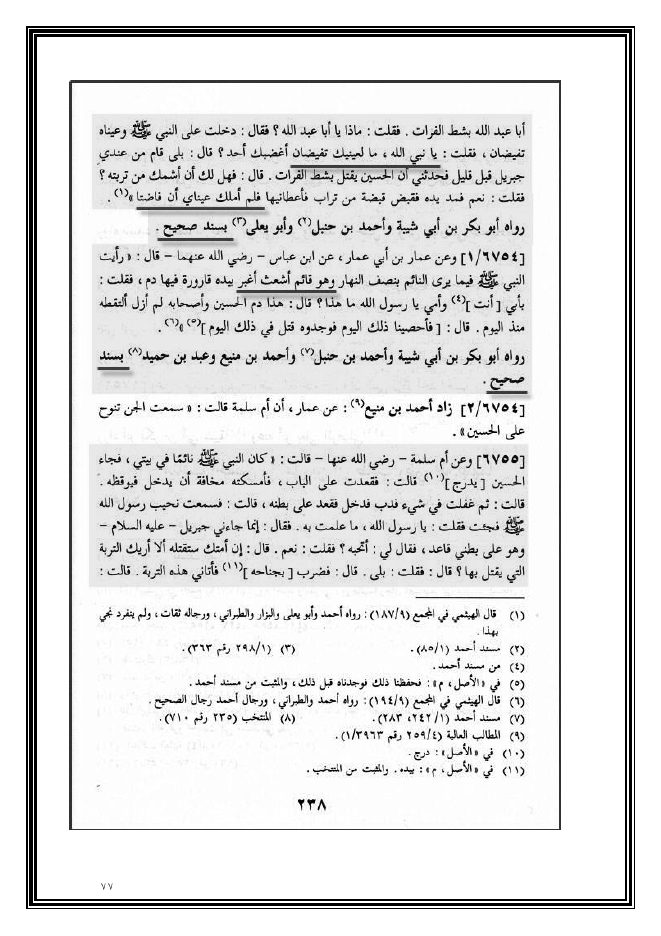 أبا عبد الله بشط الفرات . فقلت : ماذا يا أبا عبد الله ؟ فقال : دخلت على النبي ﷺ وعيناه
تفيضان ، فقلت : يا نبي الله ، ما لعينيك تفيضان أغضبك أحد ؟ قال : بلى قام من عندي
جبريل قبل قليل فحدثني أن الحسين يقتل بشط الفرات . قال : فهل لك أن أشمك من تربته ؟
فقلت : نعم فمد يده فقبض قبضة من تراب فأعطانيها فلم أملك عيناي أن فاضتا » (١) .
رواه أبو بكر بن أبي شيبة وأحمد بن حنبل (٢) وأبو يعلى (٣) بسند صحيح .
[١/٦٧٥٤] وعن عمار بن أبي عمار ، عن ابن عباس – رضي الله عنهما – قال : « رأيت
النبي ﷺ فيما يرى النائم بنصف النهار وهو قائم أشعث أغبر بيده قارورة فيها دم ، فقلت :
بأبي [ أنت ] (٤) وأمي يا رسول الله ما هذا ؟ قال : هذا دم الحسين وأصحابه لم أزل ألتقطه
منذ اليوم . قال : [ فأحصينا ذلك اليوم فوجدوه قتل في ذلك اليوم ] (٥) » (٦) .
رواه أبو بكر بن أبي شيبة وأحمد بن حنبل (٧) وأحمد بن منيع وعبد بن حميد (٨) بسند
صحيح .
[٢/٦٧٥٤] زاد أحمد بن منيع (٩) : عن عمار ، أن أم سلمة قالت : « سمعت الجن تنوح
على الحسين » .
[٦٧٥٥] وعن أم سلمة – رضي الله عنها – قالت : « كان النبي ﷺ نائمًا في بيتي ، فجاء
الحسين [ يدرج ] (١٠) قالت : فقعدت على الباب ، فأمسكته مخافة أن يدخل فيوقظه .
قالت : ثم غفلت في شيء فدب فدخل فقعد على بطنه ، قالت : فسمعت نحيب رسول الله
ﷺ فجئت فقلت : يا رسول الله ، ما علمت به . فقال : إنما جاءني جبريل – عليه السلام –
وهو على بطني قاعد ، فقال لي : أتحبه ؟ فقلت : نعم . قال : إن أمتك ستقتله ألا أريك التربة
التي يقتل بها ؟ قال : فقلت : بلى . قال : فضرب [ بجناحه ] (١١) فأتاني هذه التربة . قالت :
(١) قال الهيثمي في المجمع (١٨٧/٩) : رواه أحمد وأبو يعلى والبزار والطبراني ، ورجاله ثقات ، ولم ينفرد نجي
بهذا .
(٢) مسند أحمد (٨٥/١) . (٣) (٢٩٨/١ رقم ٣٦٣) .
(٤) من مسند أحمد .
(٥) في «الأصل ، م» : فحفظنا ذلك فوجدناه قبل ذلك ، والمثبت من مسند أحمد .
(٦) قال الهيثمي في المجمع (١٩٤/٩) : رواه أحمد والطبراني ، ورجال أحمد رجال الصحيح .
(٧) مسند أحمد (٢٤٢/١ ، ٢٨٣) . (٨) المنتخب (٢٣٥ رقم ٧١٠) .
(٩) المطالب العالية (٢٥٩/٤ رقم ١/٣٩٦٣) .
(١٠) في «الأصل» : درج .
(١١) في «الأصل ، م» : بيده . والمثبت من المنتخب .
٢٣٨
٧٧